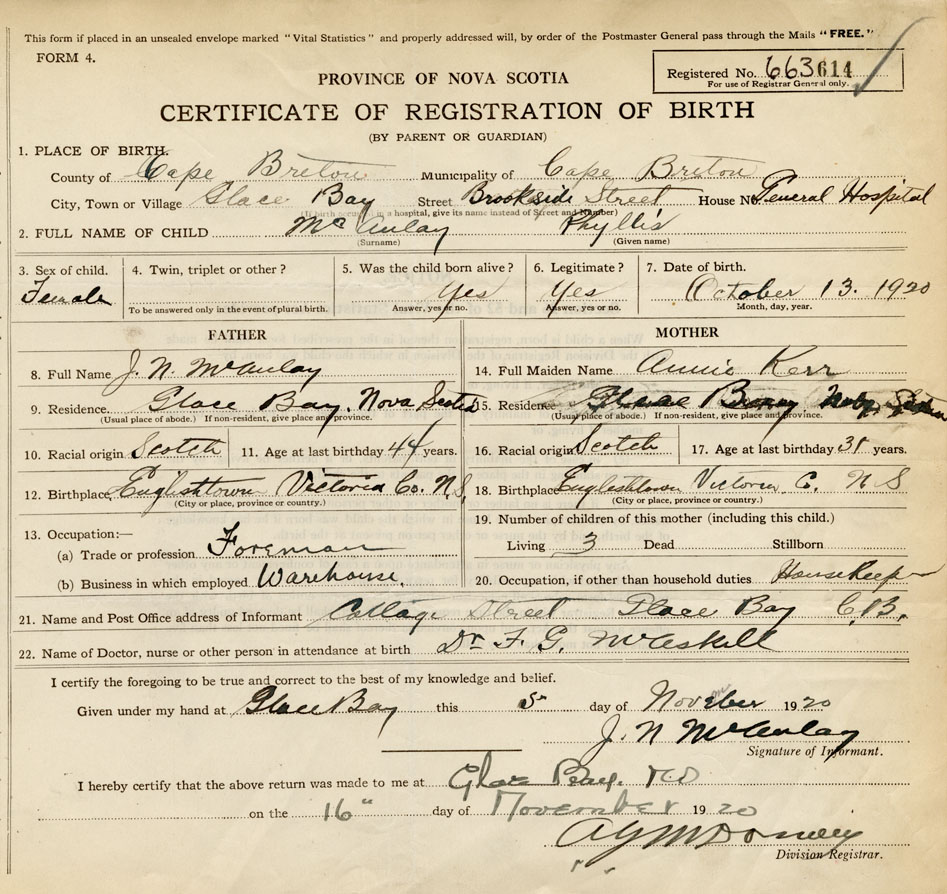 This form if placed in an unsealed envelope marked "Vital Statistics" and properly addressed will, by order of the Postmaster General pass through the Mails "FREE."
FORM 4.
Registered No. 663614
For use of Registrar General only.
PROVINCE OF NOVA SCOTIA
CERTIFICATE OF REGISTRATION OF BIRTH
(BY PARENT OR GUARDIAN)
1. PLACE OF BIRTH.
County of Cape Breton Municipality of Cape Breton
City, Town or Village Glace Bay Street Brookside Street House No. General Hospital
(If birth occurs in a hospital, give its name instead of Street and Number)
2. FULL NAME OF CHILD McAulay Phyllis
(Surname) (Given name)
3. Sex of child. 4. Twin, triplet or other? 5. Was the child born alive? 6. Legitimate? 7. Date of birth.
Female Yes Yes October 13. 1920
To be answered only in the event of plural birth. Answer, yes or no. Answer, yes or no. Month, day, year.
FATHER MOTHER
8. Full Name J. N. McAulay 14. Full Maiden Name Annie Kerr
9. Residence. Glace Bay. Nova Scotia 15. Residence
(Usual place of abode.) If non-resident, give place and province. (Usual place of abode.) If non-resident, give place and province.
10. Racial origin Scotch 11. Age at last birthday 44 years. 16. Racial origin Scotch 17. Age at last birthday years.
12. Birthplace Englishtown Victoria Co. N.S. 18. Birthplace Englishtown Victoria Co. N S
(City or place, province or country.) (City or place, province or country.)
13. Occupation:— 19. Number of children of this mother (including this child.)
(a) Trade or profession Foreman Living 3 Dead Stillborn
(b) Business in which employed Warehouse. 20. Occupation, if other than household duties HouseKeeper
21. Name and Post Office address of Informant Street Glace Bay C.B.
22. Name of Doctor, nurse or other person in attendance at birth Dr F. G. McAskill
I certify the foregoing to be true and correct to the best of my knowledge and belief.
Given under my hand at Glace Bay this 5 day of November 1920
J. N McAulay
Signature of Informant.
I hereby certify that the above return was made to me at Glace Bay.
on the 16" day of November 1920
Division Registrar.